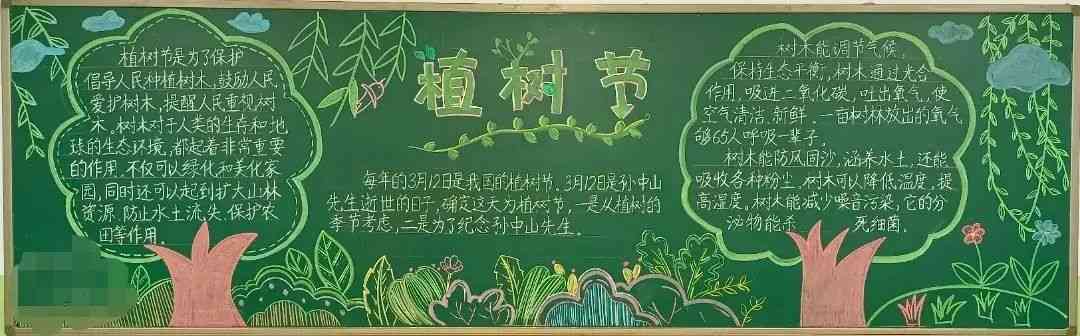 植树节是为了保护
倡导人民种植树木，鼓励人民
爱护树木，提醒人民重视树
木，树木对于人类的生存和地
球的生态环境，都起着非常重要
的作用，不仅可以绿化和美化家
园，同时还可以起到扩大山林
资源，防止水土流失，保护农
田等作用。
植树节
每年的3月12日是我国的植树节，3月12日是孙中山
先生逝世的日子，确定这天为植树节，一是从植树的
季节考虑，二是为了纪念孙中山先生。
树木能调节气候，
保持生态平衡，树木通过光合
作用，吸进二氧化碳，吐出氧气，使
空气清洁、新鲜。一亩树林放出的氧气
够65人呼吸一辈子。
树木能防风固沙，涵养水土，还能
吸收各种粉尘，树木可以降低温度，提
高湿度，树木能减少噪音污染，它的分
泌物能杀死细菌。